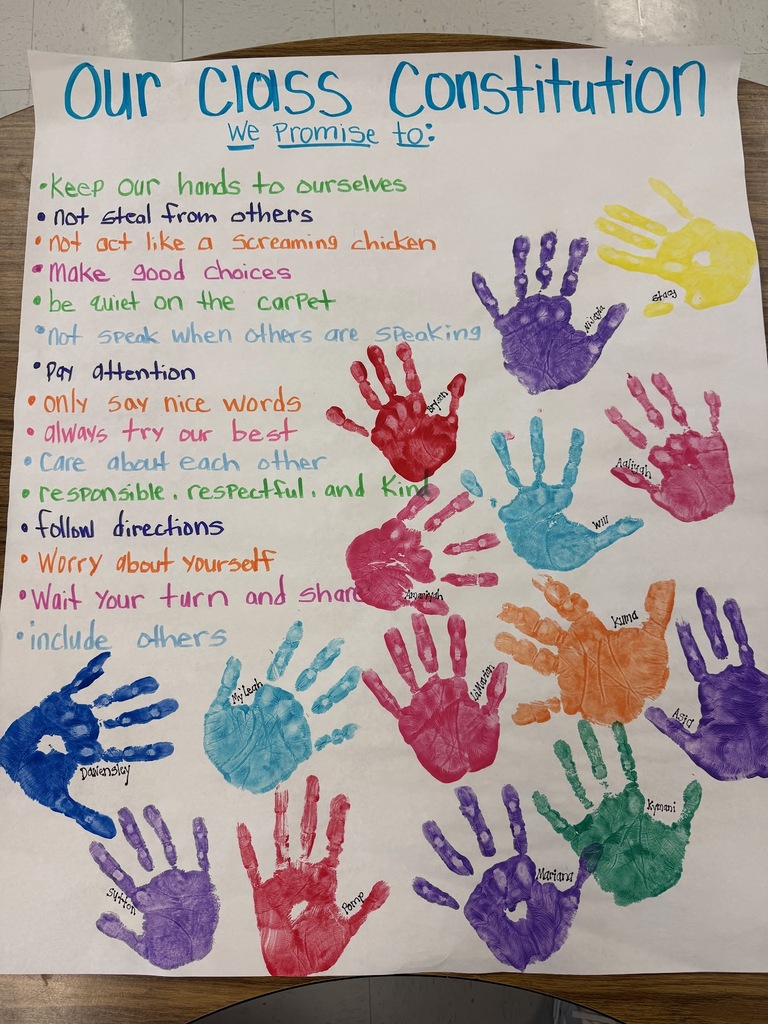 Our Class Constitution
We Promise to:
• Keep our hands to ourselves
• not steal from others
• not act like a screaming chicken
• Make good choices
• be quiet on the carpet
• not speak when others are speaking
• Pay attention
• only say nice words
• always try our best
• Care about each other
• responsible, respectful, and Kind
• follow directions
• Worry about yourself
• Wait your turn and share
• include others
Stacy
Bryson
Aaliyah
Will
Amariyah
Kuma
My'leah
LaMarion
Asia
Dawensley
Kymani
Sutton
Pomp
Mariana